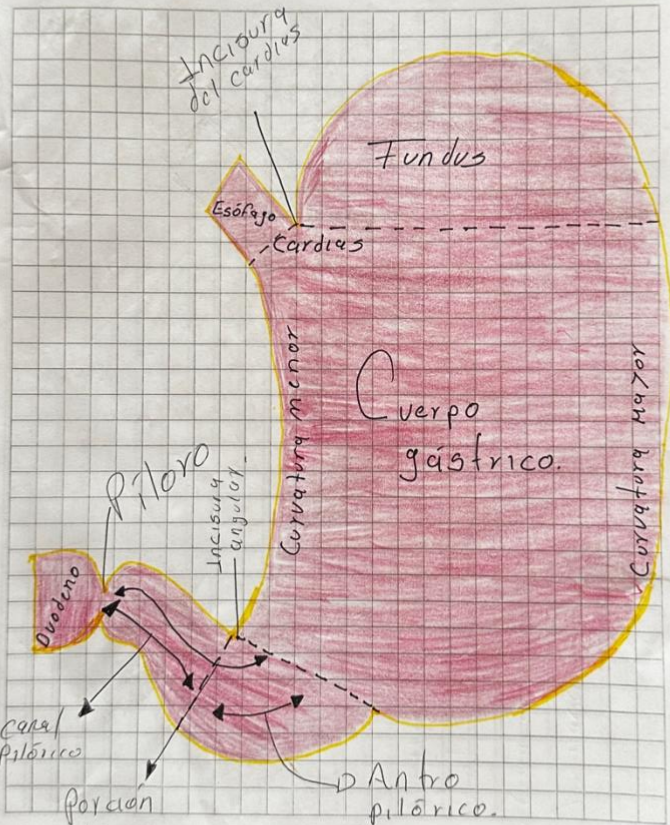 Incisura
del cardias
Fundus
Esófago
Cardias
Curvatura menor
Cuerpo
gástrico.
Curvatura Mayor
Píloro
Incisura
angular.
Duodeno
Canal
Pilórico
Porción
Antro
pilórico.